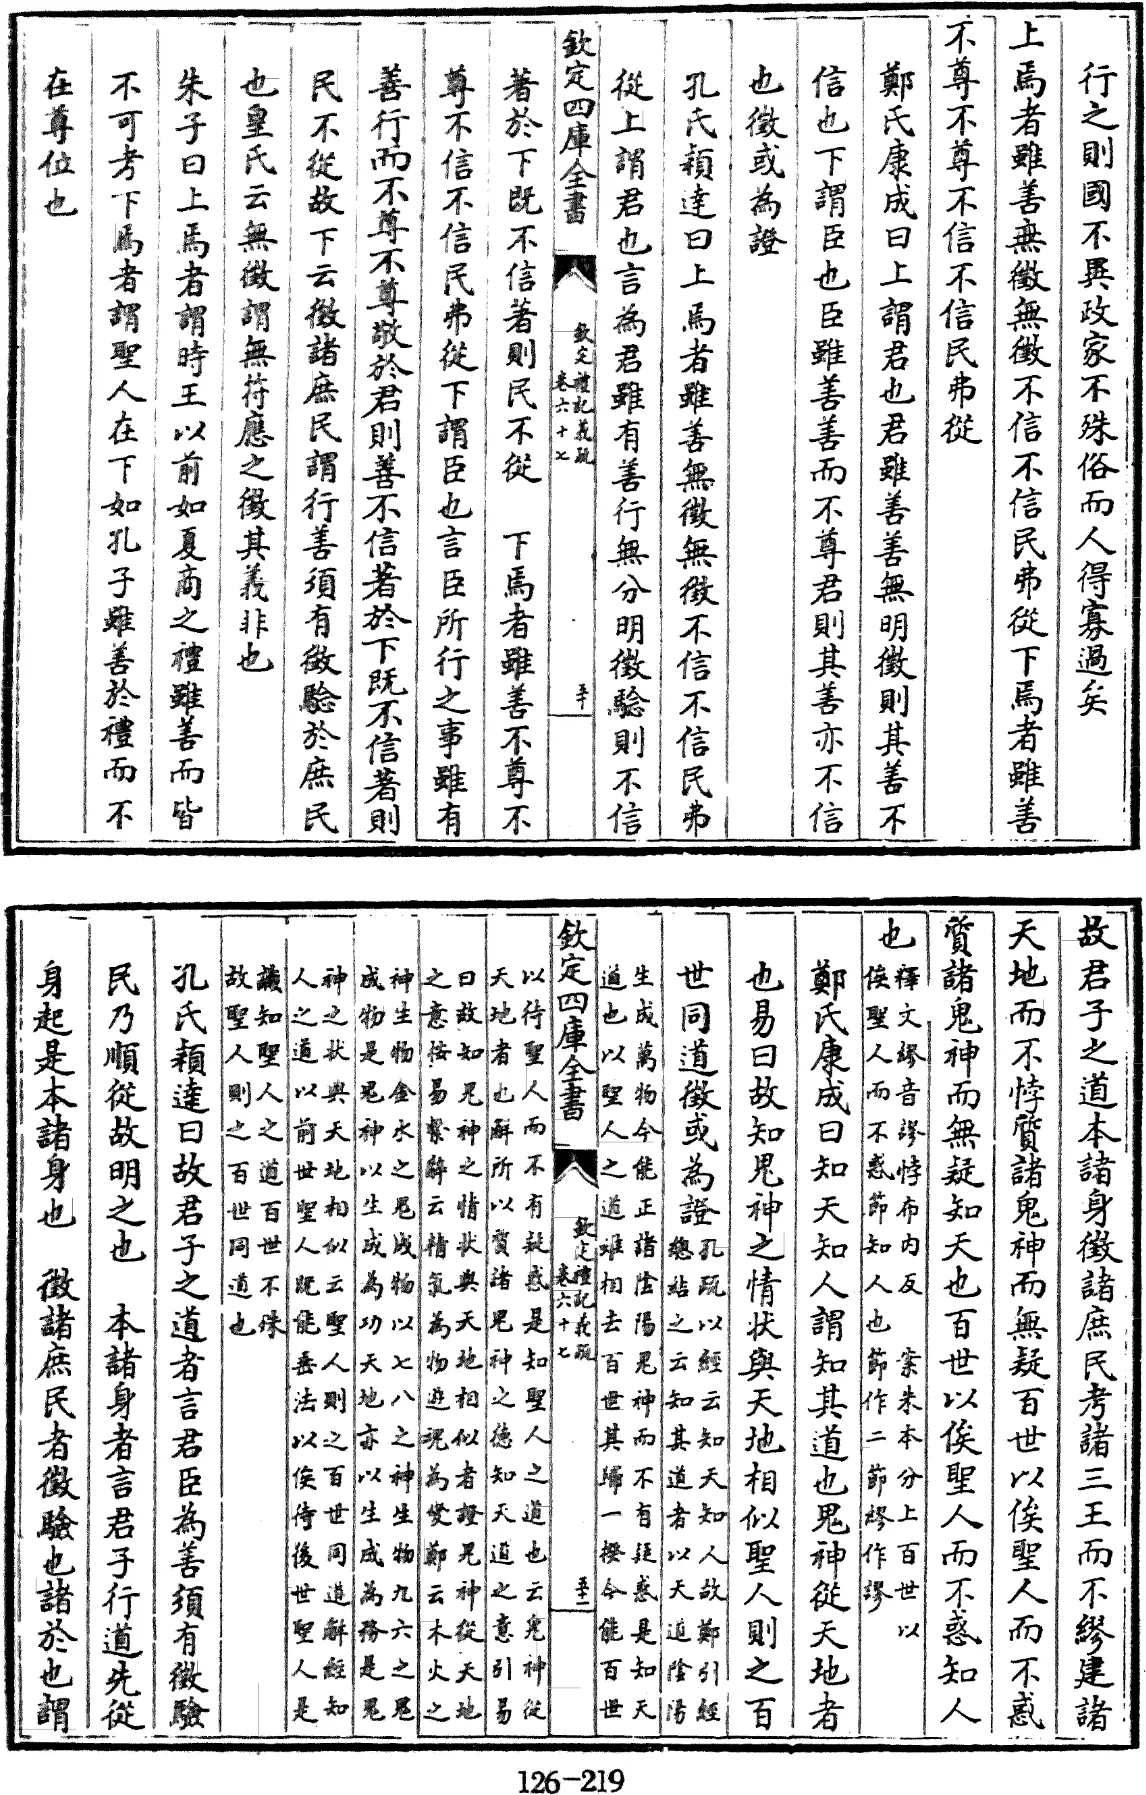 行之則國不異政家不殊俗而人得寡過矣
上焉者雖善無徵無徵不信不信民弗從下焉者雖善
不尊不尊不信不信民弗從
鄭氏康成曰上謂君也君雖善善無明徵則其善不
信也下謂臣也臣雖善善而不尊君則其善亦不信
也徵或為證
孔氏穎達曰上焉者雖善無徵無徵不信不信民弗
從上謂君也言為君雖有善行無分明徵驗則不信
欽定四庫全書
欽定禮記義疏
卷六十七
五十
著於下既不信著則民不從 下焉者雖善不尊不
尊不信不信民弗從下謂臣也言臣所行之事雖有
善行而不尊不尊敬於君則善不信著於下既不信著則
民不從故下云徵諸庶民謂行善須有徵驗於庶民
也皇氏云無徵謂無符應之徵其義非也
朱子曰上焉者謂時王以前如夏商之禮雖善而皆
不可考下焉者謂聖人在下如孔子雖善於禮而不
在尊位也
故君子之道本諸身徵諸庶民考諸三王而不繆建諸
天地而不悖質諸鬼神而無疑百世以俟聖人而不惑
質諸鬼神而無疑知天也百世以俟聖人而不惑知人
也
釋文繆音謬悖布內反 案朱本分上百世以
俟聖人而不惑節知人也節作二節繆作謬
鄭氏康成曰知天知人謂知其道也鬼神從天地者
也易曰故知鬼神之情狀與天地相似聖人則之百
世同道徵或為證
孔疏以經云知天知人故鄭引經
總結之云知其道者以天道陰陽
生成萬物今能正諸陰陽鬼神而不有疑惑是知天
道也以聖人之道雖相去百世其歸一揆今能百世
欽定四庫全書
欽定禮記義疏
卷六十七
五十一
以待聖人而不有疑惑是知聖人之道也云鬼神從
天地者也解所以質諸鬼神之德知天道之意引易
曰故知鬼神之情狀與天地相似者證鬼神從天地
之意按易繫辭云精氣為物遊魂為變鄭云木火之
神生物金水之鬼成物以七八之神生物九六之鬼
成物是鬼神以生成為功天地亦以生成為務是鬼
神之狀與天地相似云聖人則之百世同道解經知
人之道以前世聖人既能垂法以俟待後世聖人是
識知聖人之道百世不殊
故聖人則之百世同道也
孔氏穎達曰故君子之道者言君臣為善須有徵驗
民乃順從故明之也 本諸身者言君子行道先從
身起是本諸身也 徵諸庶民者徵驗也諸於也謂
126-219